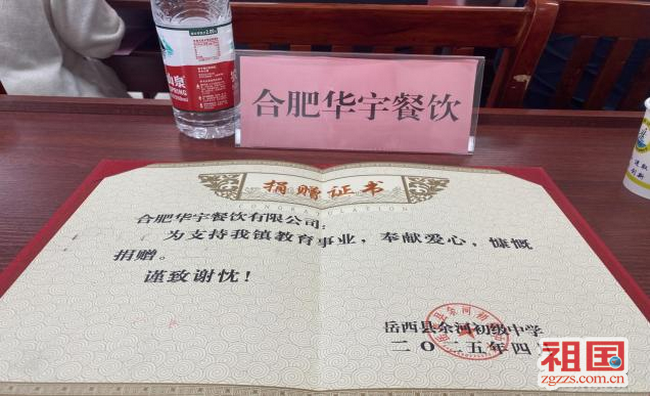 泉
SPRING
合肥华宇餐饮
捐赠证书
CONGRATULATION
合肥华宇餐饮有限公司：
为支持我镇教育事业，奉献爱心，慷慨
捐赠。
谨致谢忱！
岳西县余河初级中学
二〇二五年四
祖国
zgzzs.com.cn